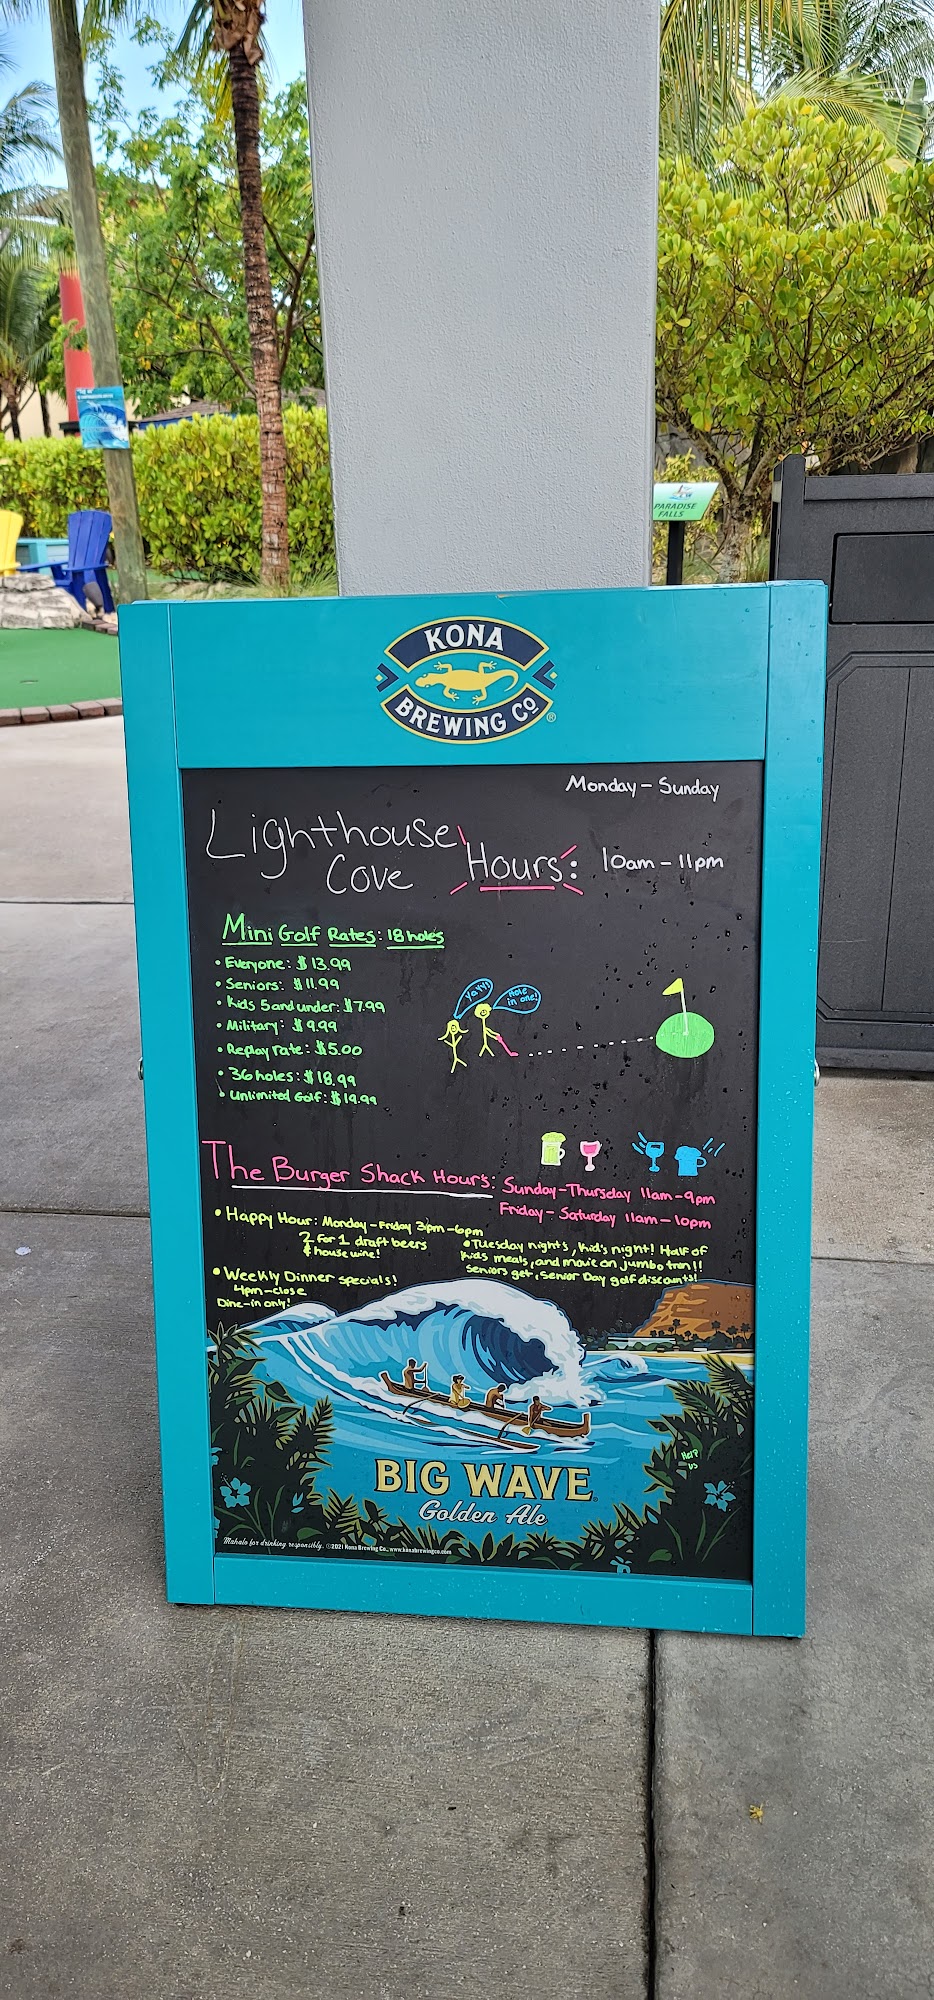 PARADISE
FALLS
KONA
BREWING Co ®
Monday - Sunday
Lighthouse
Cove
Hours: 10am - 11pm
Mini Golf Rates: 18 holes
• Everyone: $13.99
• Seniors: $11.99
• Kids 5 and under: $7.99
• Military: $9.99
• Replay rate: $5.00
• 36 holes: $18.99
• Unlimited Golf: $19.99
Yay!!
Hole
in one!
The Burger Shack Hours: Sunday-Thursday 11am-9pm
Friday - Saturday 11am-10pm
• Happy Hour: Monday - Friday 3pm-6pm
2 for 1 draft beers
& house wine!
• Tuesday nights, Kid's night! Half of
kids meals, and movie on jumbo tron!!
Seniors get, Senior Day golf discounts!
• Weekly Dinner specials!
4pm-close
Dine-in only!
BIG WAVE
Golden Ale
Mahalo for drinking responsibly. ©2021 Kona Brewing Co., www.konabrewingco.com